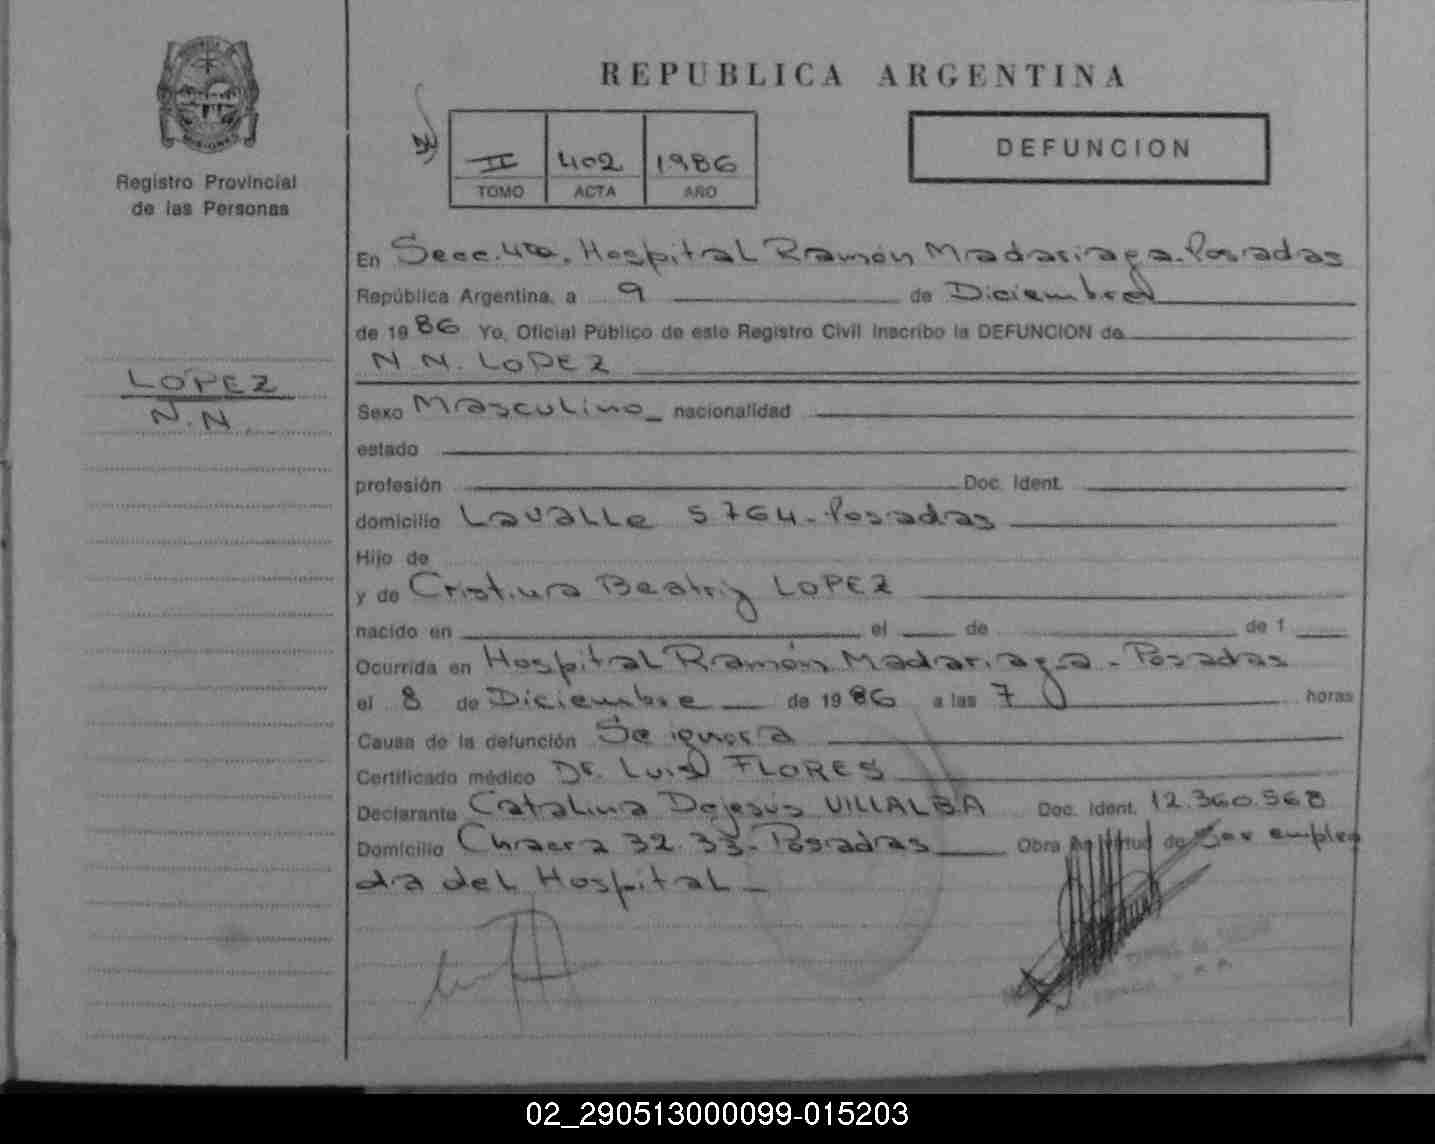 REPUBLICA ARGENTINA
MISIONES
Registro Provincial
de las Personas
II 402 1986
TOMO ACTA AÑO
DEFUNCION
En Secc. 4ta. Hospital Ramón Madariaga. Posadas
República Argentina, a 9 de Diciembre
de 1986 Yo, Oficial Público de este Registro Civil inscribo la DEFUNCION de
N.N. LOPEZ
LOPEZ
N.N.
Sexo Masculino nacionalidad
estado
profesión Doc. Ident.
domicilio Lavalle 5764 - Posadas
Hijo de
y de Cristina Beatriz LOPEZ
nacido en el de de 1
Ocurrida en Hospital Ramón Madariaga - Posadas
el 8 de Diciembre de 1986 a las 7 horas
Causa de la defunción Se ignora
Certificado médico Dr. Luis FLORES
Declarante Catalina Dejesús VILLALBA Doc. Ident. 12.360.568
Domicilio Chacra 32.33 - Posadas Obra en virtud de Ser emplea
da del Hospital -
02_290513000099-015203